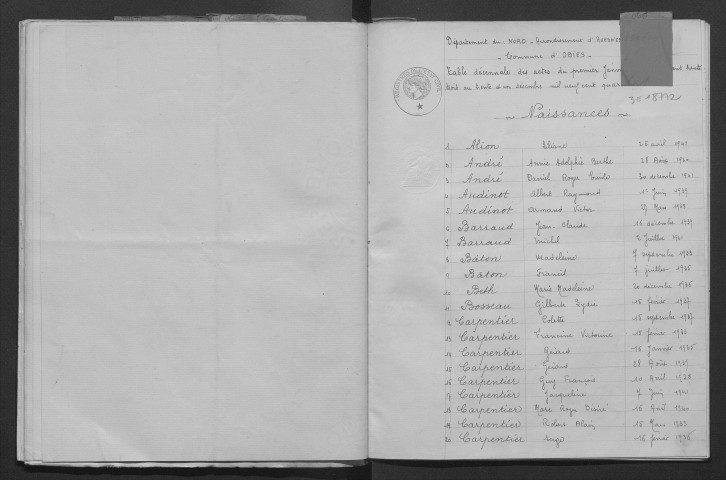 Département du NORD - Arrondissement d'AVESNES
- Commune d'OBIES -
Table décennale des actes du premier Janvier cent trente
trois au trente et un décembre mil neuf cent quar
9018772
Naissances
1 Alion Liliane 25 avril 1941
2 André Annie Adolphie Berthe 28 Août 1940
3 André Daniel Roger Emile 30 décembre 1941
4 Audinot Albert Raymond 1er Juin 1937
5 Audinot Armand Victor 27 Mars 1939
6 Barraud Jean-Claude 18 décembre 1937
7 Barraud Michel 2 Juillet 1941
8 Bâton Madeleine 7 septembre 1933
9 Bâton Francis 7 juillet 1935
10 Beth Marie Madeleine 20 décembre 1936
11 Bosseau Gilberte Lydie 15 février 1937
12 Carpentier Colette 15 septembre 1937
13 Carpentier Francine Victorine 15 février 1933
14 Carpentier Gérard 16 Janvier 1935
15 Carpentier Gérard 28 Août 1937
16 Carpentier Guy François 10 Avril 1938
17 Carpentier Jacqueline 7 Juin 1941
18 Carpentier Marc Roger Désiré 16 Août 1940
19 Carpentier Robert Alain 18 Mars 1933
20 Carpentier Serge 16 février 1936